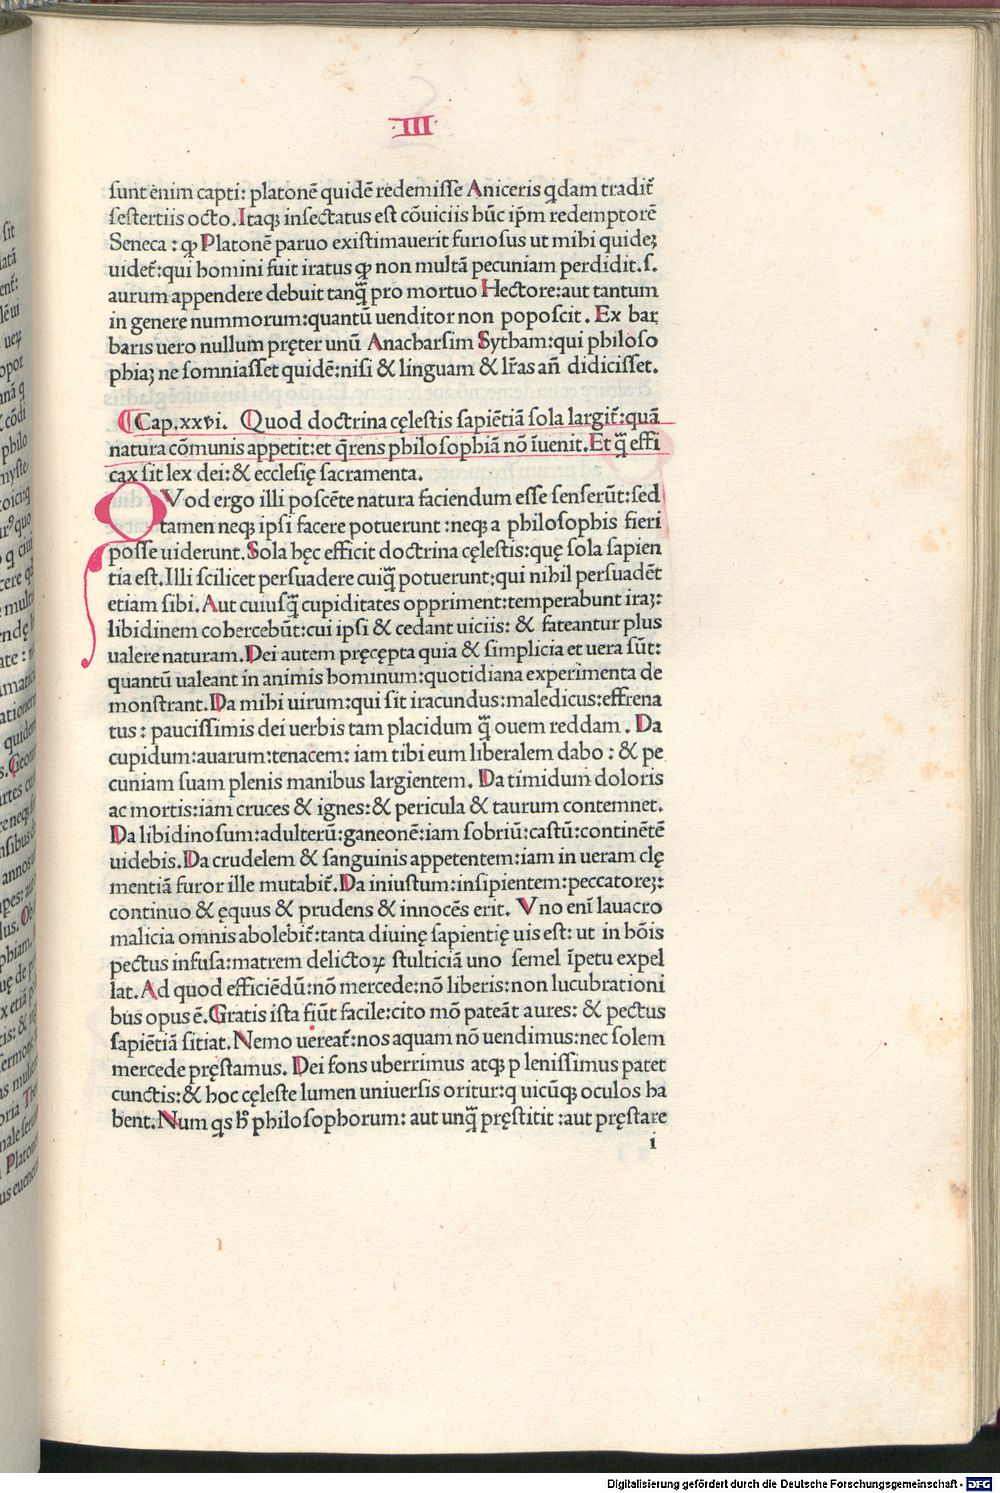 ·III·
sunt enim capti: platonē quidē redemisse Aniceris qdam tradit᷑
sestertiis octo. Itaqꝫ insectatus est cōuiciis hūc ip̄m redemptorē
Seneca: ꝙ Platonē paruo existimauerit furiosus ut mihi quideꝫ
uidet᷑: qui homini fuit iratus ꝙ non multā pecuniam perdidit. s.
aurum appendere debuit tanq̄ pro mortuo Hectore: aut tantum
in genere nummorum: quantū uenditor non poposcit. Ex bar
baris uero nullum pręter unū Anacharsim Sytham: qui philoso
phiaꝫ ne somniasset quidē: nisi & linguam & lr̄as an̄ didicisset.
Cap. xxvi. Quod doctrina cęlestis sapiētiā sola largit᷑: quā
natura cōmunis appetit: et q̄rens philosophiā nō īuenit. Et q̄ effi
cax sit lex dei: & ecclesię sacramenta.
QVod ergo illi poscēte natura faciendum esse senserūt: sed
tamen neqꝫ ipsi facere potuerunt: neqꝫ a philosophis fieri
posse uiderunt. Sola hęc efficit doctrina cęlestis: quę sola sapien
tia est. Illi scilicet persuadere cuiq̄ potuerunt: qui nihil persuadēt
etiam sibi. Aut cuiusq̄ cupiditates oppriment: temperabunt iraꝫ:
libidinem cohercebūt: cui ipsi & cedant uiciis: & fateantur plus
ualere naturam. Dei autem pręcępta quia & simplicia et uera sūt:
quantū ualeant in animis hominum: quotidiana experimenta de
monstrant. Da mihi uirum: qui sit iracundus: maledicus: effrena
tus: paucissimis dei uerbis tam placidum q̄ ouem reddam. Da
cupidum: auarum: tenacem: iam tibi eum liberalem dabo: & pe
cuniam suam plenis manibus largientem. Da timidum doloris
ac mortis: iam cruces & ignes: & pericula & taurum contemnet.
Da libidinosum: adulterū: ganeonē: iam sobriū: castū: continētē
uidebis. Da crudelem & sanguinis appetentem: iam in ueram clę
mentiā furor ille mutabit᷑. Da iniustum: insipientem: peccatoreꝫ:
continuo & ęquus & prudens & innocēs erit. Vno enī lauacro
malicia omnis abolebit᷑: tanta diuinę sapientię uis est: ut in hōis
pectus infusa: matrem delictoꝝ stulticiā uno semel īpetu expel
lat. Ad quod efficiēdū: nō mercede: nō liberis: non lucubrationi
bus opus ē. Gratis ista fiūt facile: cito mō pateāt aures: & pectus
sapiētiā sitiat. Nemo uereat᷑: nos aquam nō uendimus: nec solem
mercede pręstamus. Dei fons uberrimus atqꝫ plenissimus patet
cunctis: & hoc cęleste lumen uniuersis oritur: quicūqꝫ oculos ha
bent. Num qs h̄ philosophorum: aut unq̄ pręstitit: aut pręstare
i
Digitalisierung gefördert durch die Deutsche Forschungsgemeinschaft - DFG